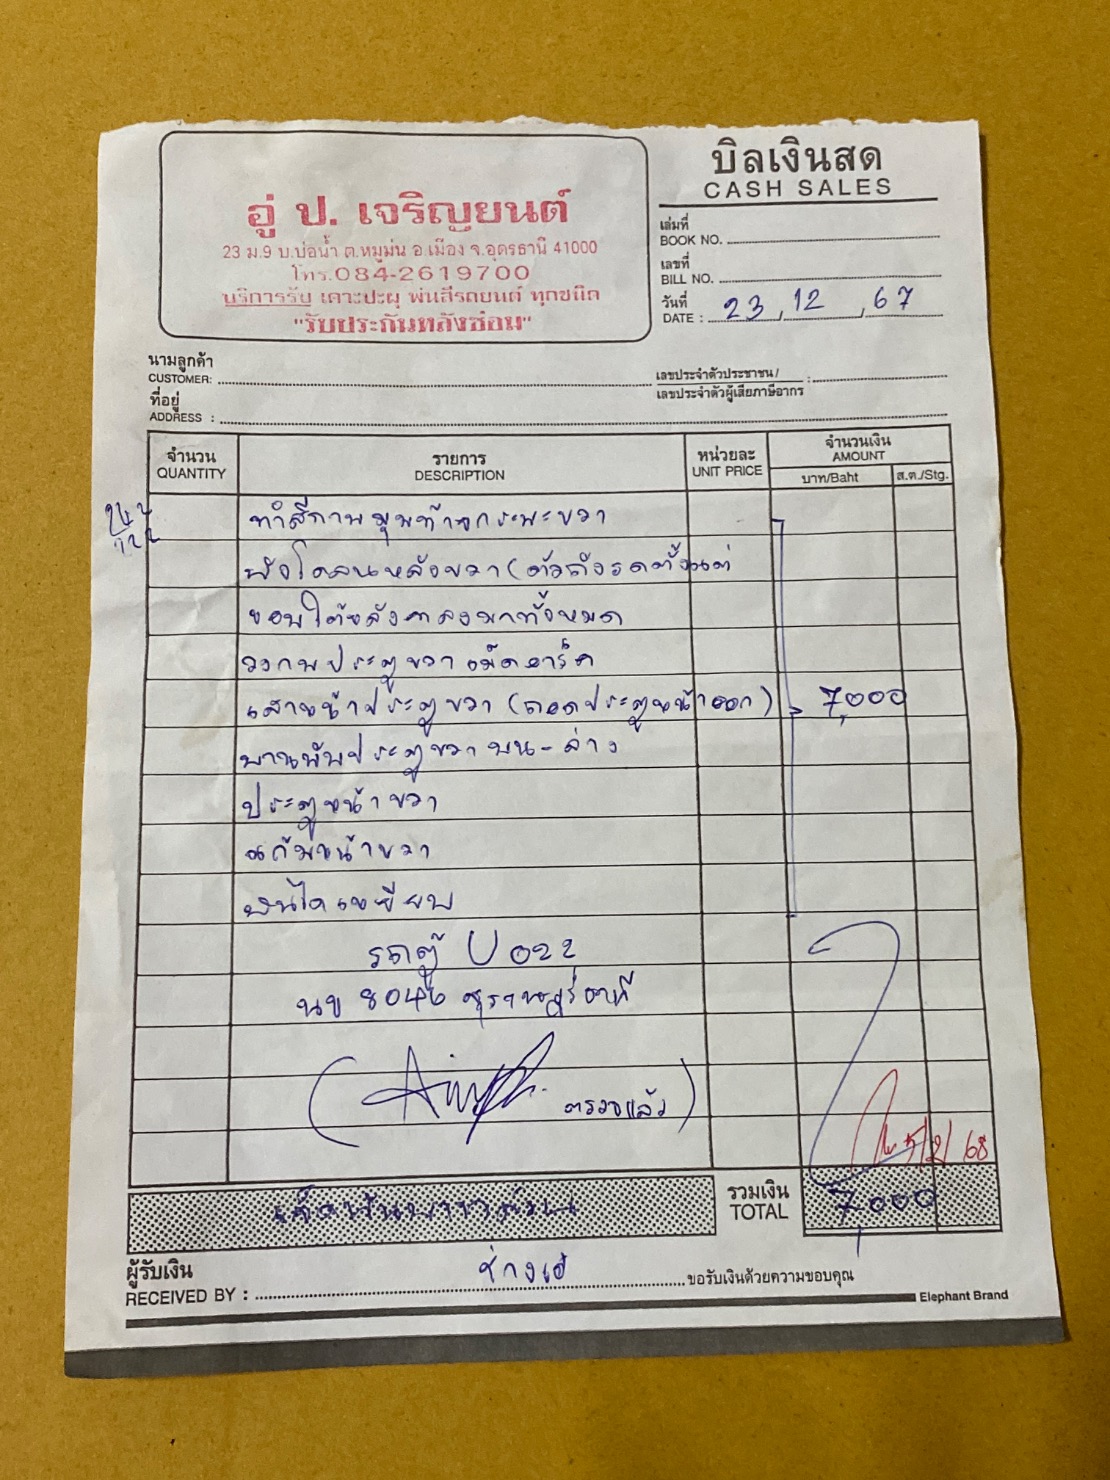 บิลเงินสด
CASH SALES
อู่ ป. เจริญยนต์
23 ม.9 บ.บ่อน้ำ ต.หมูม่น อ.เมือง จ.อุดรธานี 41000
โทร.084-2619700
บริการรับ เคาะปะผุ พ่นสีรถยนต์ ทุกชนิด
"รับประกันหลังซ่อม"
เล่มที่
BOOK NO.
เลขที่
BILL NO.
วันที่
DATE : 23, 12, 67
นามลูกค้า
CUSTOMER:
เลขประจำตัวประชาชน /
เลขประจำตัวผู้เสียภาษีอากร :
ที่อยู่
ADDRESS :
จำนวน รายการ หน่วยละ จำนวนเงิน
QUANTITY DESCRIPTION UNIT PRICE AMOUNT
บาท/Baht ส.ต./Stg.
ทำสีกาบมุมท้ายกระบะขวา
บังโคลนหลังขวา (ตัวถังรถตั้งแต่
ขอบใต้หลังคาลงมาทั้งหมด
วงกบประตูขวา
เสาหน้าประตูขวา (ถอดประตูหน้าออก) 7,000
บานพับประตูขวา บน - ล่าง
ประตูหน้าขวา
แก้มหน้าขวา
บันไดเหยียบ
รถตู้ U 022
นข 8046 สุราษฎร์ธานี
( ตรวจแล้ว )
5/2/68
เจ็ดพันบาทถ้วน
รวมเงิน
TOTAL 7,000
ผู้รับเงิน
RECEIVED BY : ช่างเอ๋ ขอรับเงินด้วยความขอบคุณ
Elephant Brand